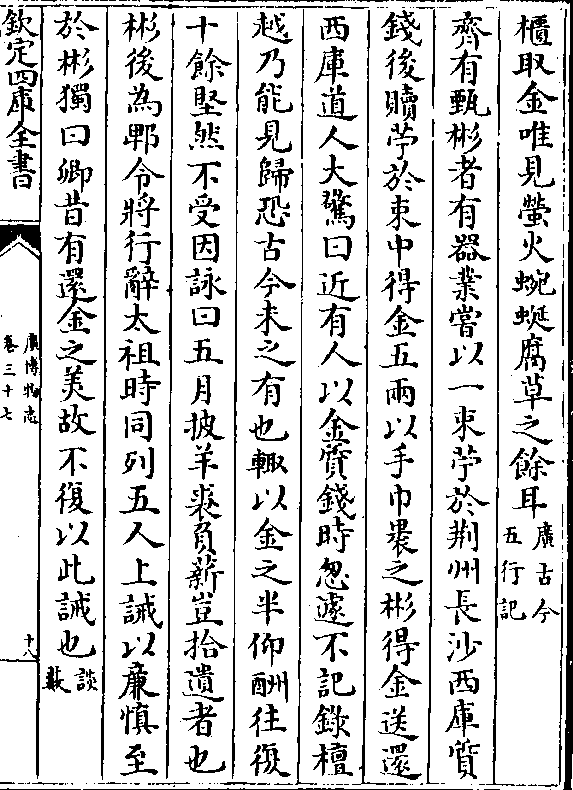 櫃取金唯見螢火蜿蜒腐草之餘耳廣古今五行記
齊有甄彬者有器業嘗以一束苧於荆州長沙西庫質
錢後贖苧於束中得金五兩以手巾褁之彬得金送還
西庫道人大驚曰近有人以金質錢時忽遽不記錄檀
越乃能見歸恐古今未之有也輙以金之半仰酬往復
十餘堅然不受因詠曰五月披羊裘負薪豈拾遺者也
彬後為郫令將行辭太祖時同列五人上誡以廉慎至
於彬獨曰卿昔有還金之美故不復以此誡也談藪
欽定四庫全書
廣博物志
卷三十七
十八